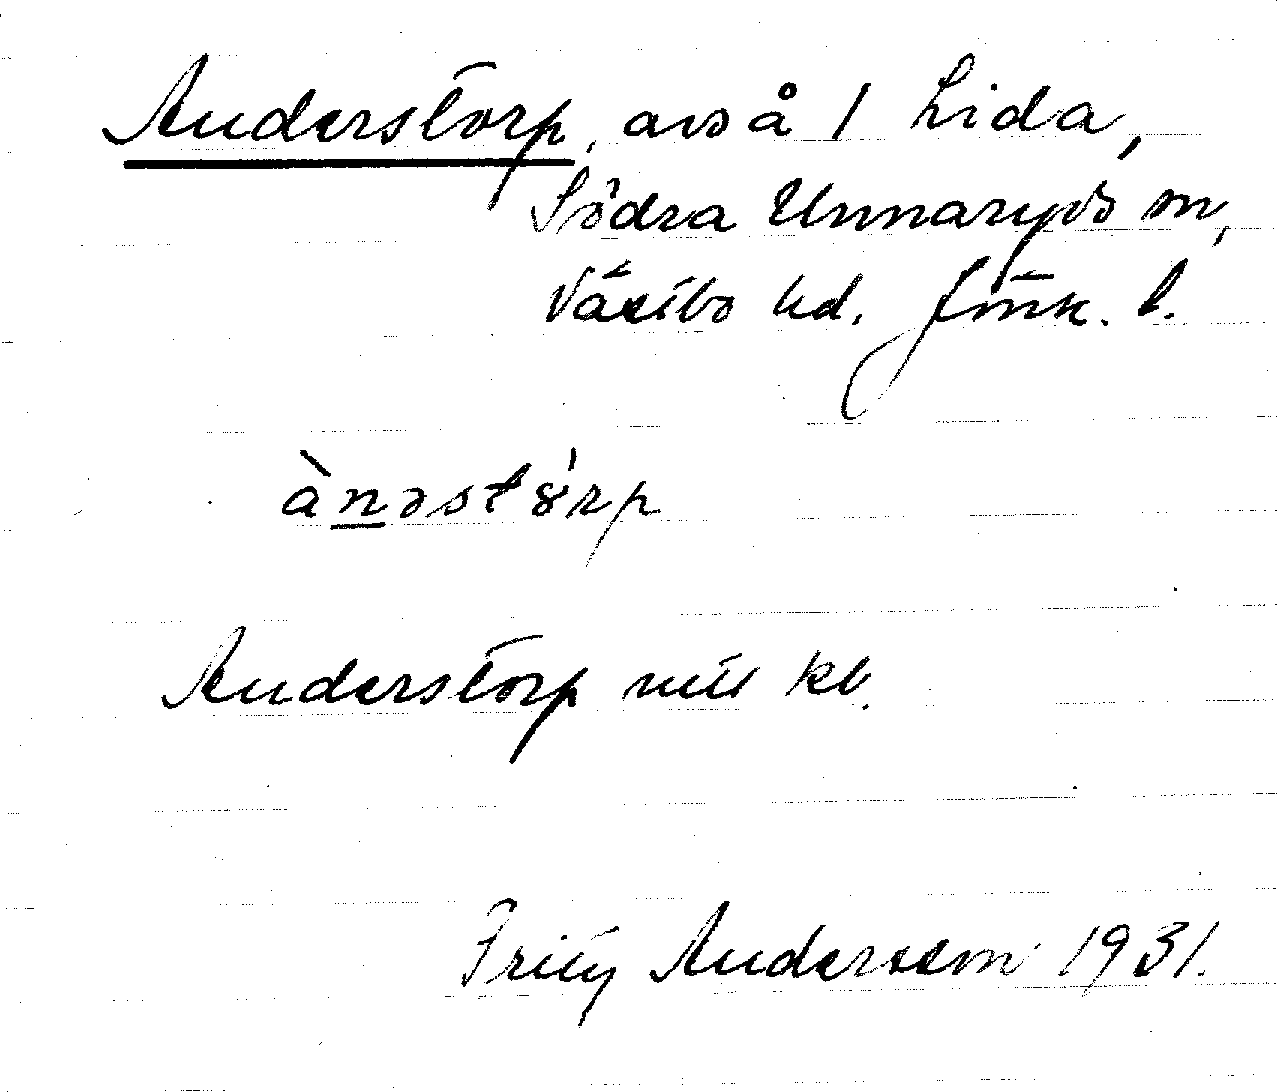 Anderstorp, avs å 1 Lida,
Södra Unnaryds sn,
Västbo hd. Jönk. l.
ànəstórp
Anderstorp
Fritz Andersson 1931.